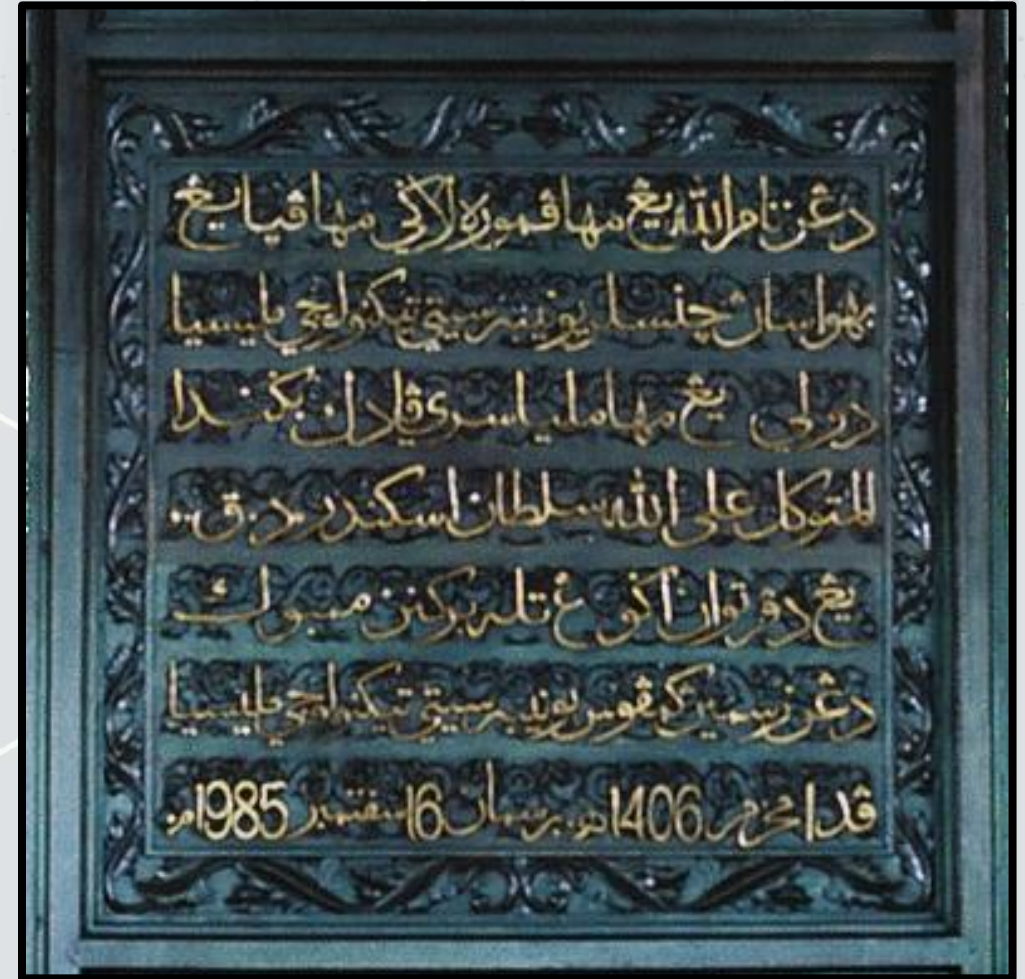 دڠن نام الله يڠ مها ڤموره لاݢي مها ڤڽايڠ
بهوا سان چنسلر يونيبرسيتي تيكنولوجي مليسيا
دولي يڠ مها مليا سري ڤادك بݢيندا
المتوكل على الله سلطان اسكندر د.ق.
يڠ دڤرتوان اݢوڠ تله بركنن ممبوك
دڠن رسمين كمڤوس يونيبرسيتي تيكنولوجي مليسيا
ڤدا محرم 1406هـ. برسمان 16 سڤتمبر 1985م.